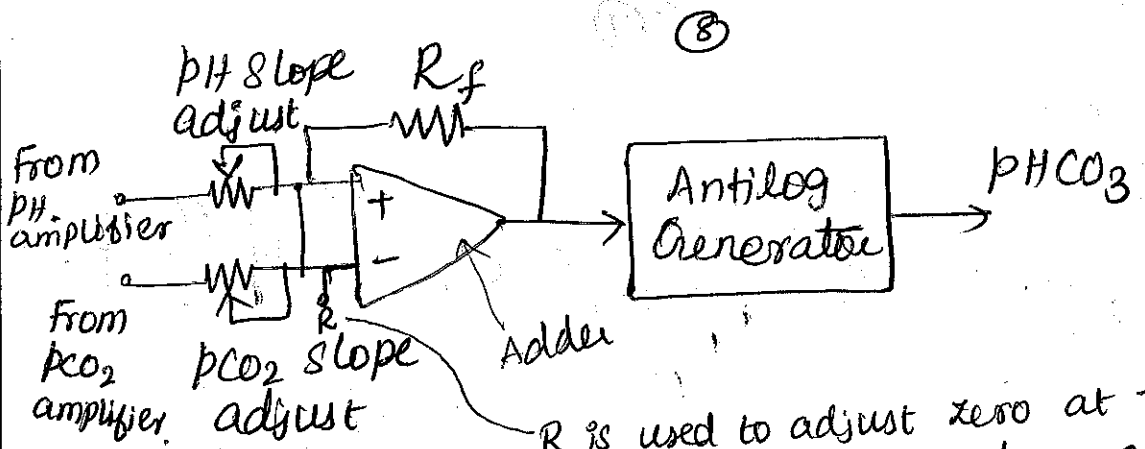 8
pH slope
adjust
Rf
From
pH
amplifier
+
-
Antilog
Generator
pHCO3
From
pCO2
amplifier
pCO2 slope
adjust
R
Adder
R is used to adjust zero at